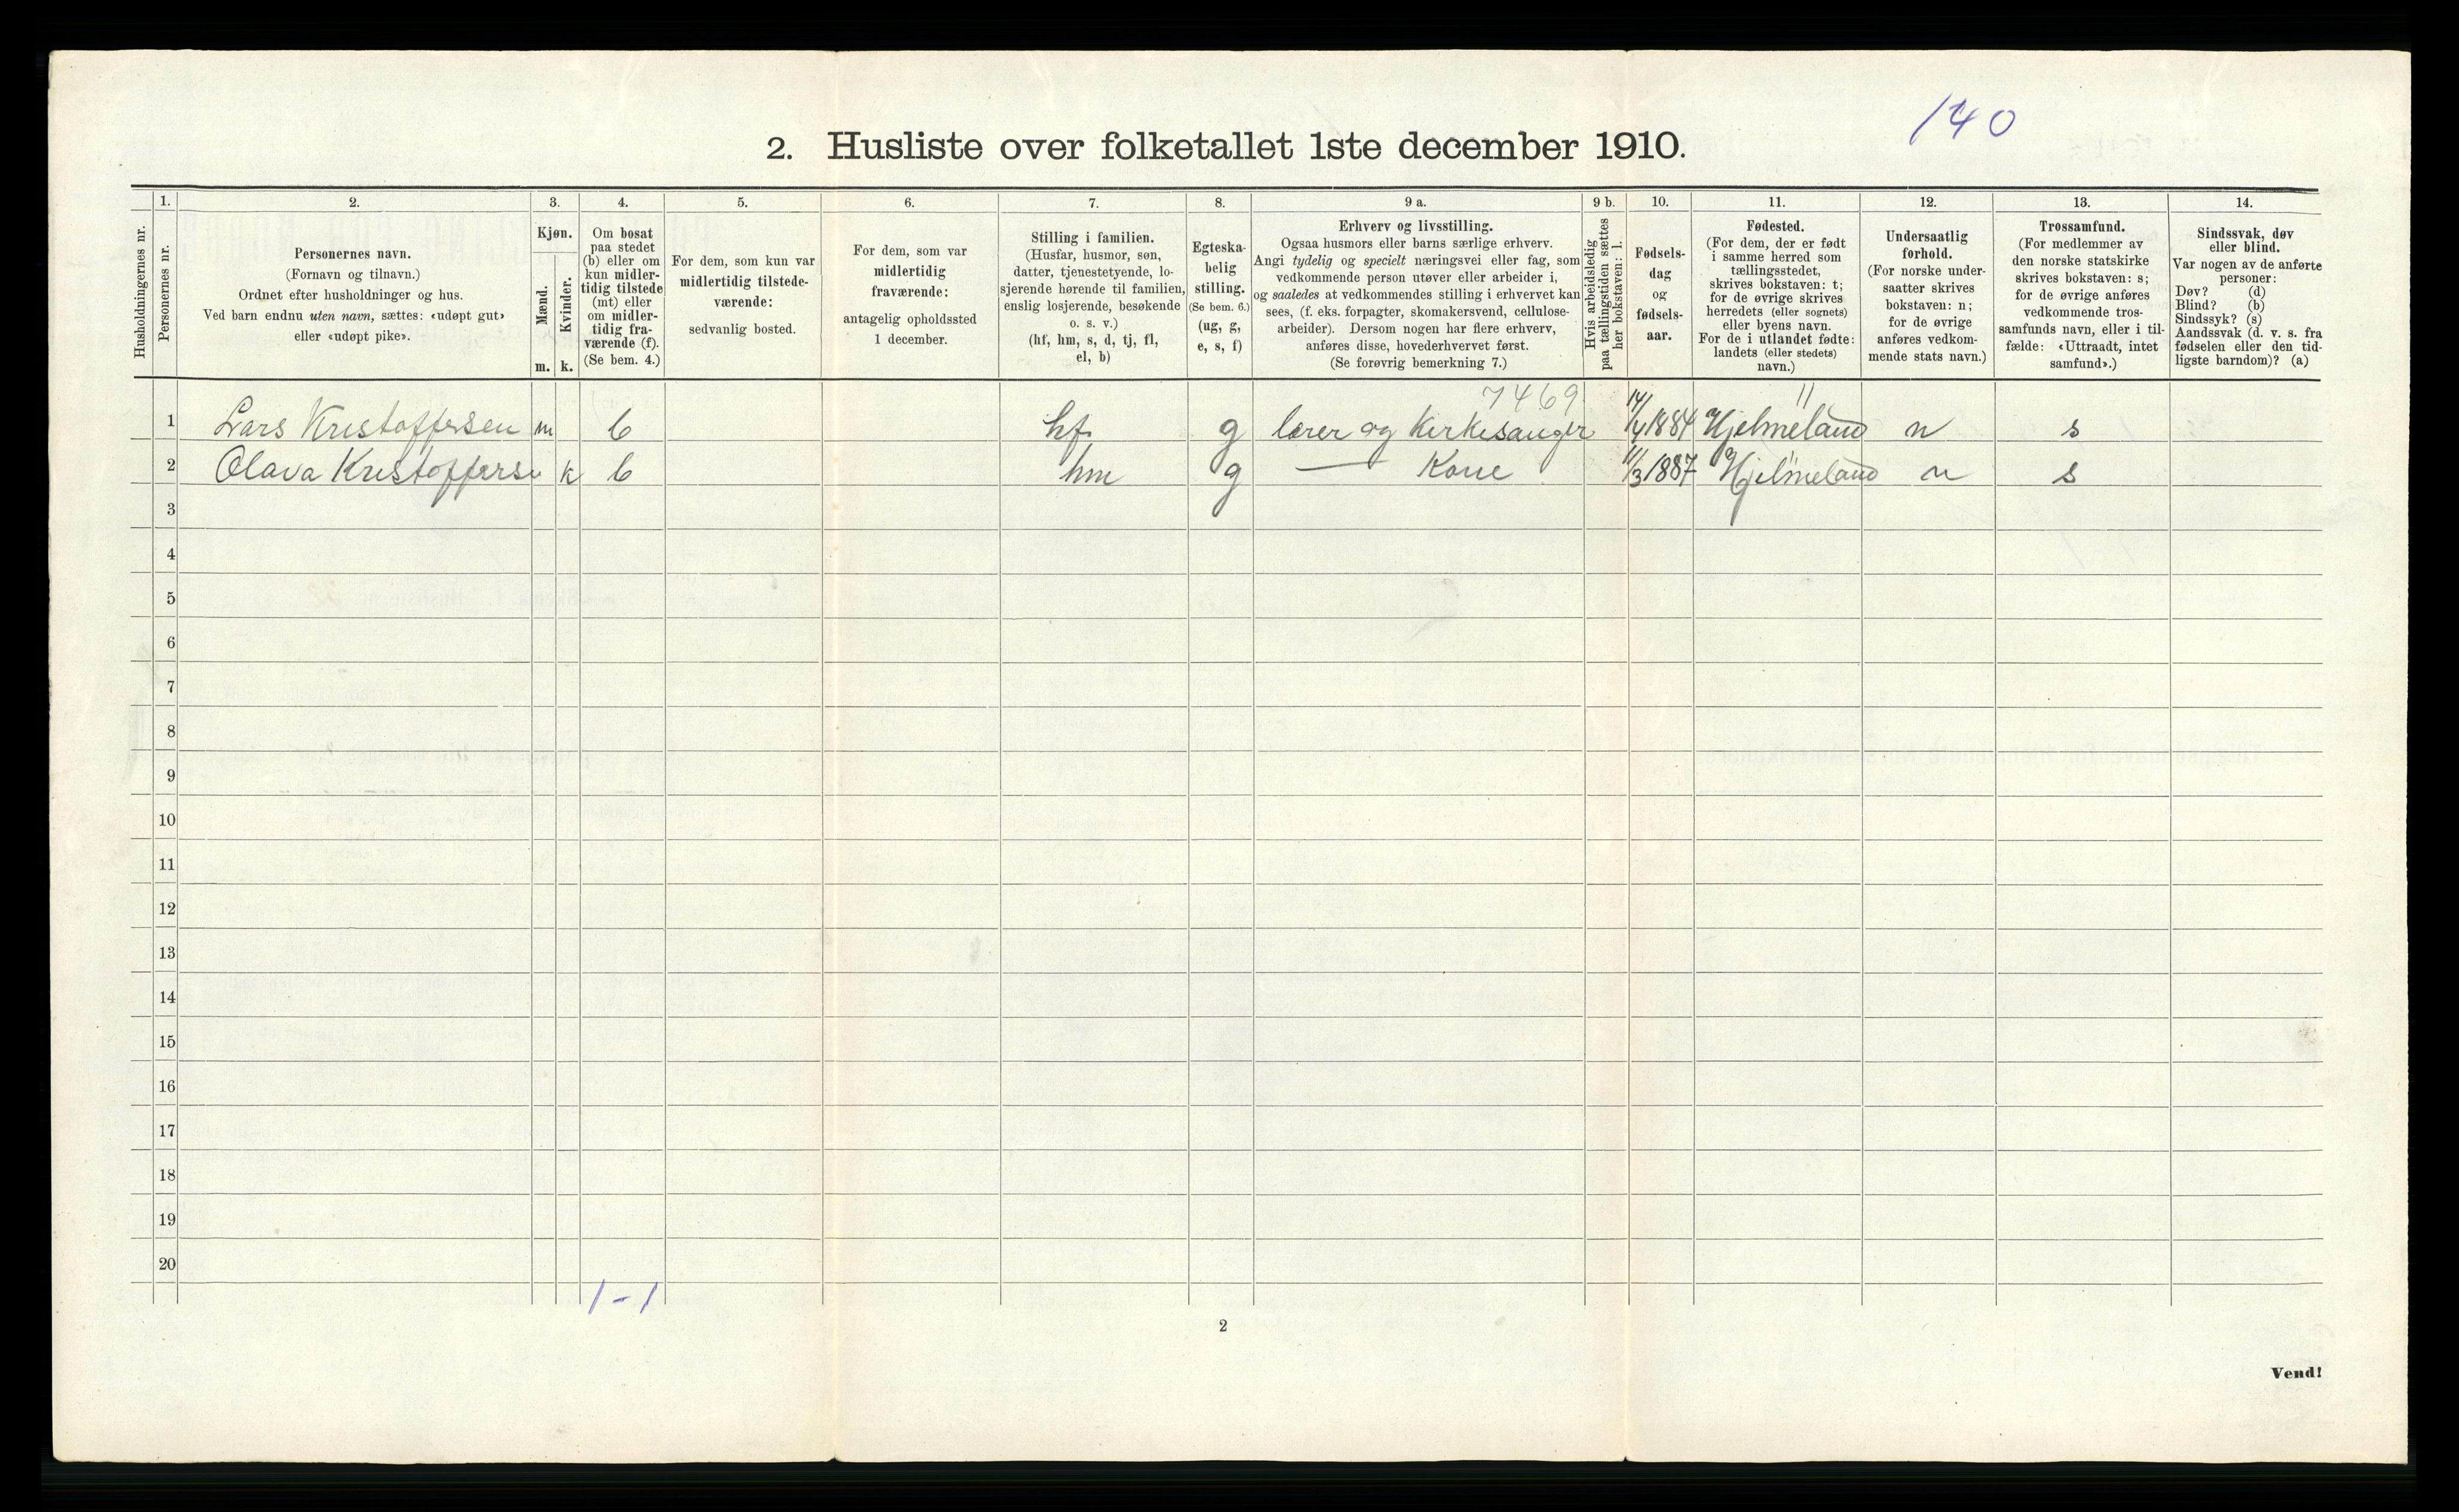 140
2. Husliste over folketallet 1ste december 1910.
Husholdningernes nr.
1. Personernes nr.
2. Personernes navn.
(Fornavn og tilnavn.)
Ordnet efter husholdninger og hus.
Ved barn endnu uten navn, sættes: «udøpt gut»
eller «udøpt pike».
3. Kjøn.
Mænd. Kvinder.
m. k.
4. Om bosat
paa stedet
(b) eller om
kun midler-
tidig tilstede
(mt) eller
om midler-
tidig fra-
værende (f).
(Se bem. 4.)
5. For dem, som kun var
midlertidig tilstede-
værende:
sedvanlig bosted.
6. For dem, som var
midlertidig
fraværende:
antagelig opholdssted
1 december.
7. Stilling i familien.
(Husfar, husmor, søn,
datter, tjenestetyende, lo-
sjerende hørende til familien,
enslig losjerende, besøkende
o. s. v.)
(hf, hm, s, d, tj, fl,
el, b)
8. Egteska-
belig
stilling.
(Se bem. 6.)
(ug, g,
e, s, f)
9 a. Erhverv og livsstilling.
Ogsaa husmors eller barns særlige erhverv.
Angi tydelig og specielt næringsvei eller fag, som
vedkommende person utøver eller arbeider i,
og saaledes at vedkommendes stilling i erhvervet kan
sees, (f. eks. forpagter, skomakersvend, cellulose-
arbeider). Dersom nogen har flere erhverv,
anføres disse, hovederhvervet først.
(Se forøvrig bemerkning 7.)
9 b. Hvis arbeidsledig
paa tællingstiden sættes
her bokstaven: l.
10. Fødsels-
dag
og
fødsels-
aar.
11. Fødested.
(For dem, der er født
i samme herred som
tællingsstedet,
skrives bokstaven: t;
for de øvrige skrives
herredets (eller sognets)
eller byens navn.
For de i utlandet fødte:
landets (eller stedets)
navn.)
12. Undersaatlig
forhold.
(For norske under-
saatter skrives
bokstaven: n;
for de øvrige
anføres vedkom-
mende stats navn.)
13. Trossamfund.
(For medlemmer av
den norske statskirke
skrives bokstaven: s;
for de øvrige anføres
vedkommende tros-
samfunds navn, eller i til-
fælde: «Uttraadt, intet
samfund».)
14. Sindssvak, døv
eller blind.
Var nogen av de anførte
personer:
Døv? (d)
Blind? (b)
Sindssyk? (s)
Aandssvak (d. v. s. fra
fødselen eller den tid-
ligste barndom)? (a)
7469 11
1 Lars Kristoffersen m b hf g lærer og Kirkesanger 14/4 1884 Hjelmeland n s
2 Olava Kristofferse k b hm g — Kone 11/3 1887 Hjelmeland n s
3
4
5
6
7
8
9
10
11
12
13
14
15
16
17
18
19
20
1 - 1
2
Vend!